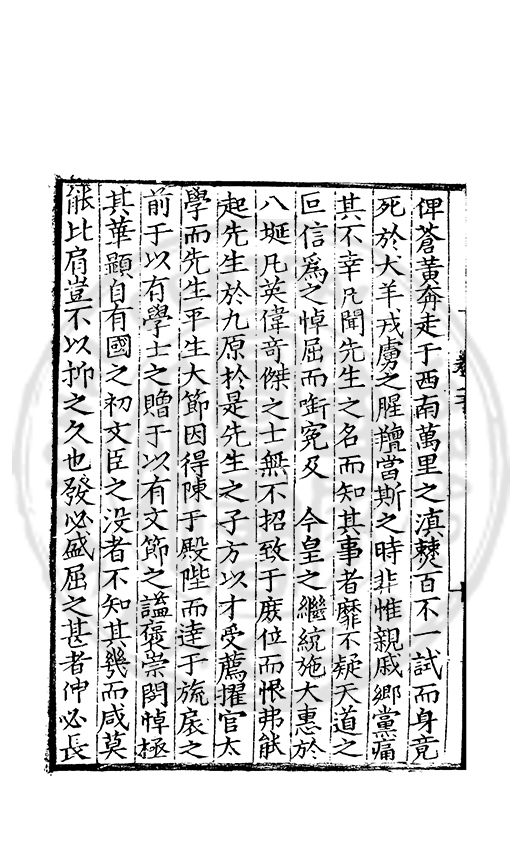 俾蒼黃奔走于西南萬里之滇僰百不一試而身竟
死於犬羊戎虜之腥羶當斯之時非惟親戚鄉黨痛
其不幸凡聞先生之名而知其事者靡不疑天道之
叵信爲之悼屈而衘寃及　今皇之繼統施大惠於
八埏凡英偉奇傑之士無不招致于庶位而恨弗能
起先生於九原於是先生之子方以才受薦擢官太
學而先生平生大節因得陳于殿陛而達于旒扆之
前于以有學士之贈于以有文節之謚褒崇閔悼極
其華顯自有國之初文臣之没者不知其幾而咸莫
能比肩豈不以抑之久也發必盛屈之甚者伸必長